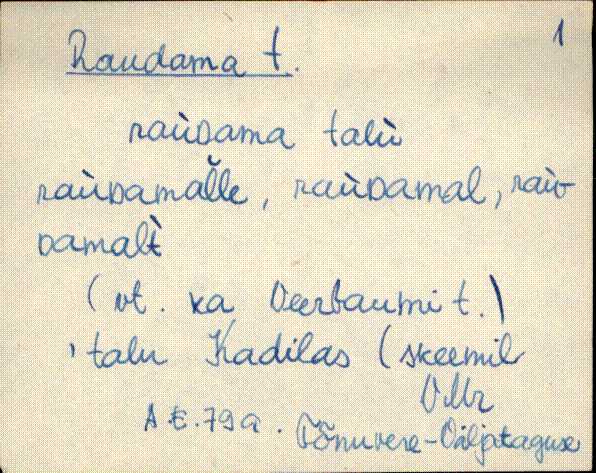 1
Raudama t.
raùᴅama talù
raùᴅamal̆le, raùᴅamal, raù-
ᴅamal̀t
(vt. ka Veerbaumi t.)
, talu Kadilas (skeemil
VMr
A.E. 79a. Tõnuvere-Väljataguse